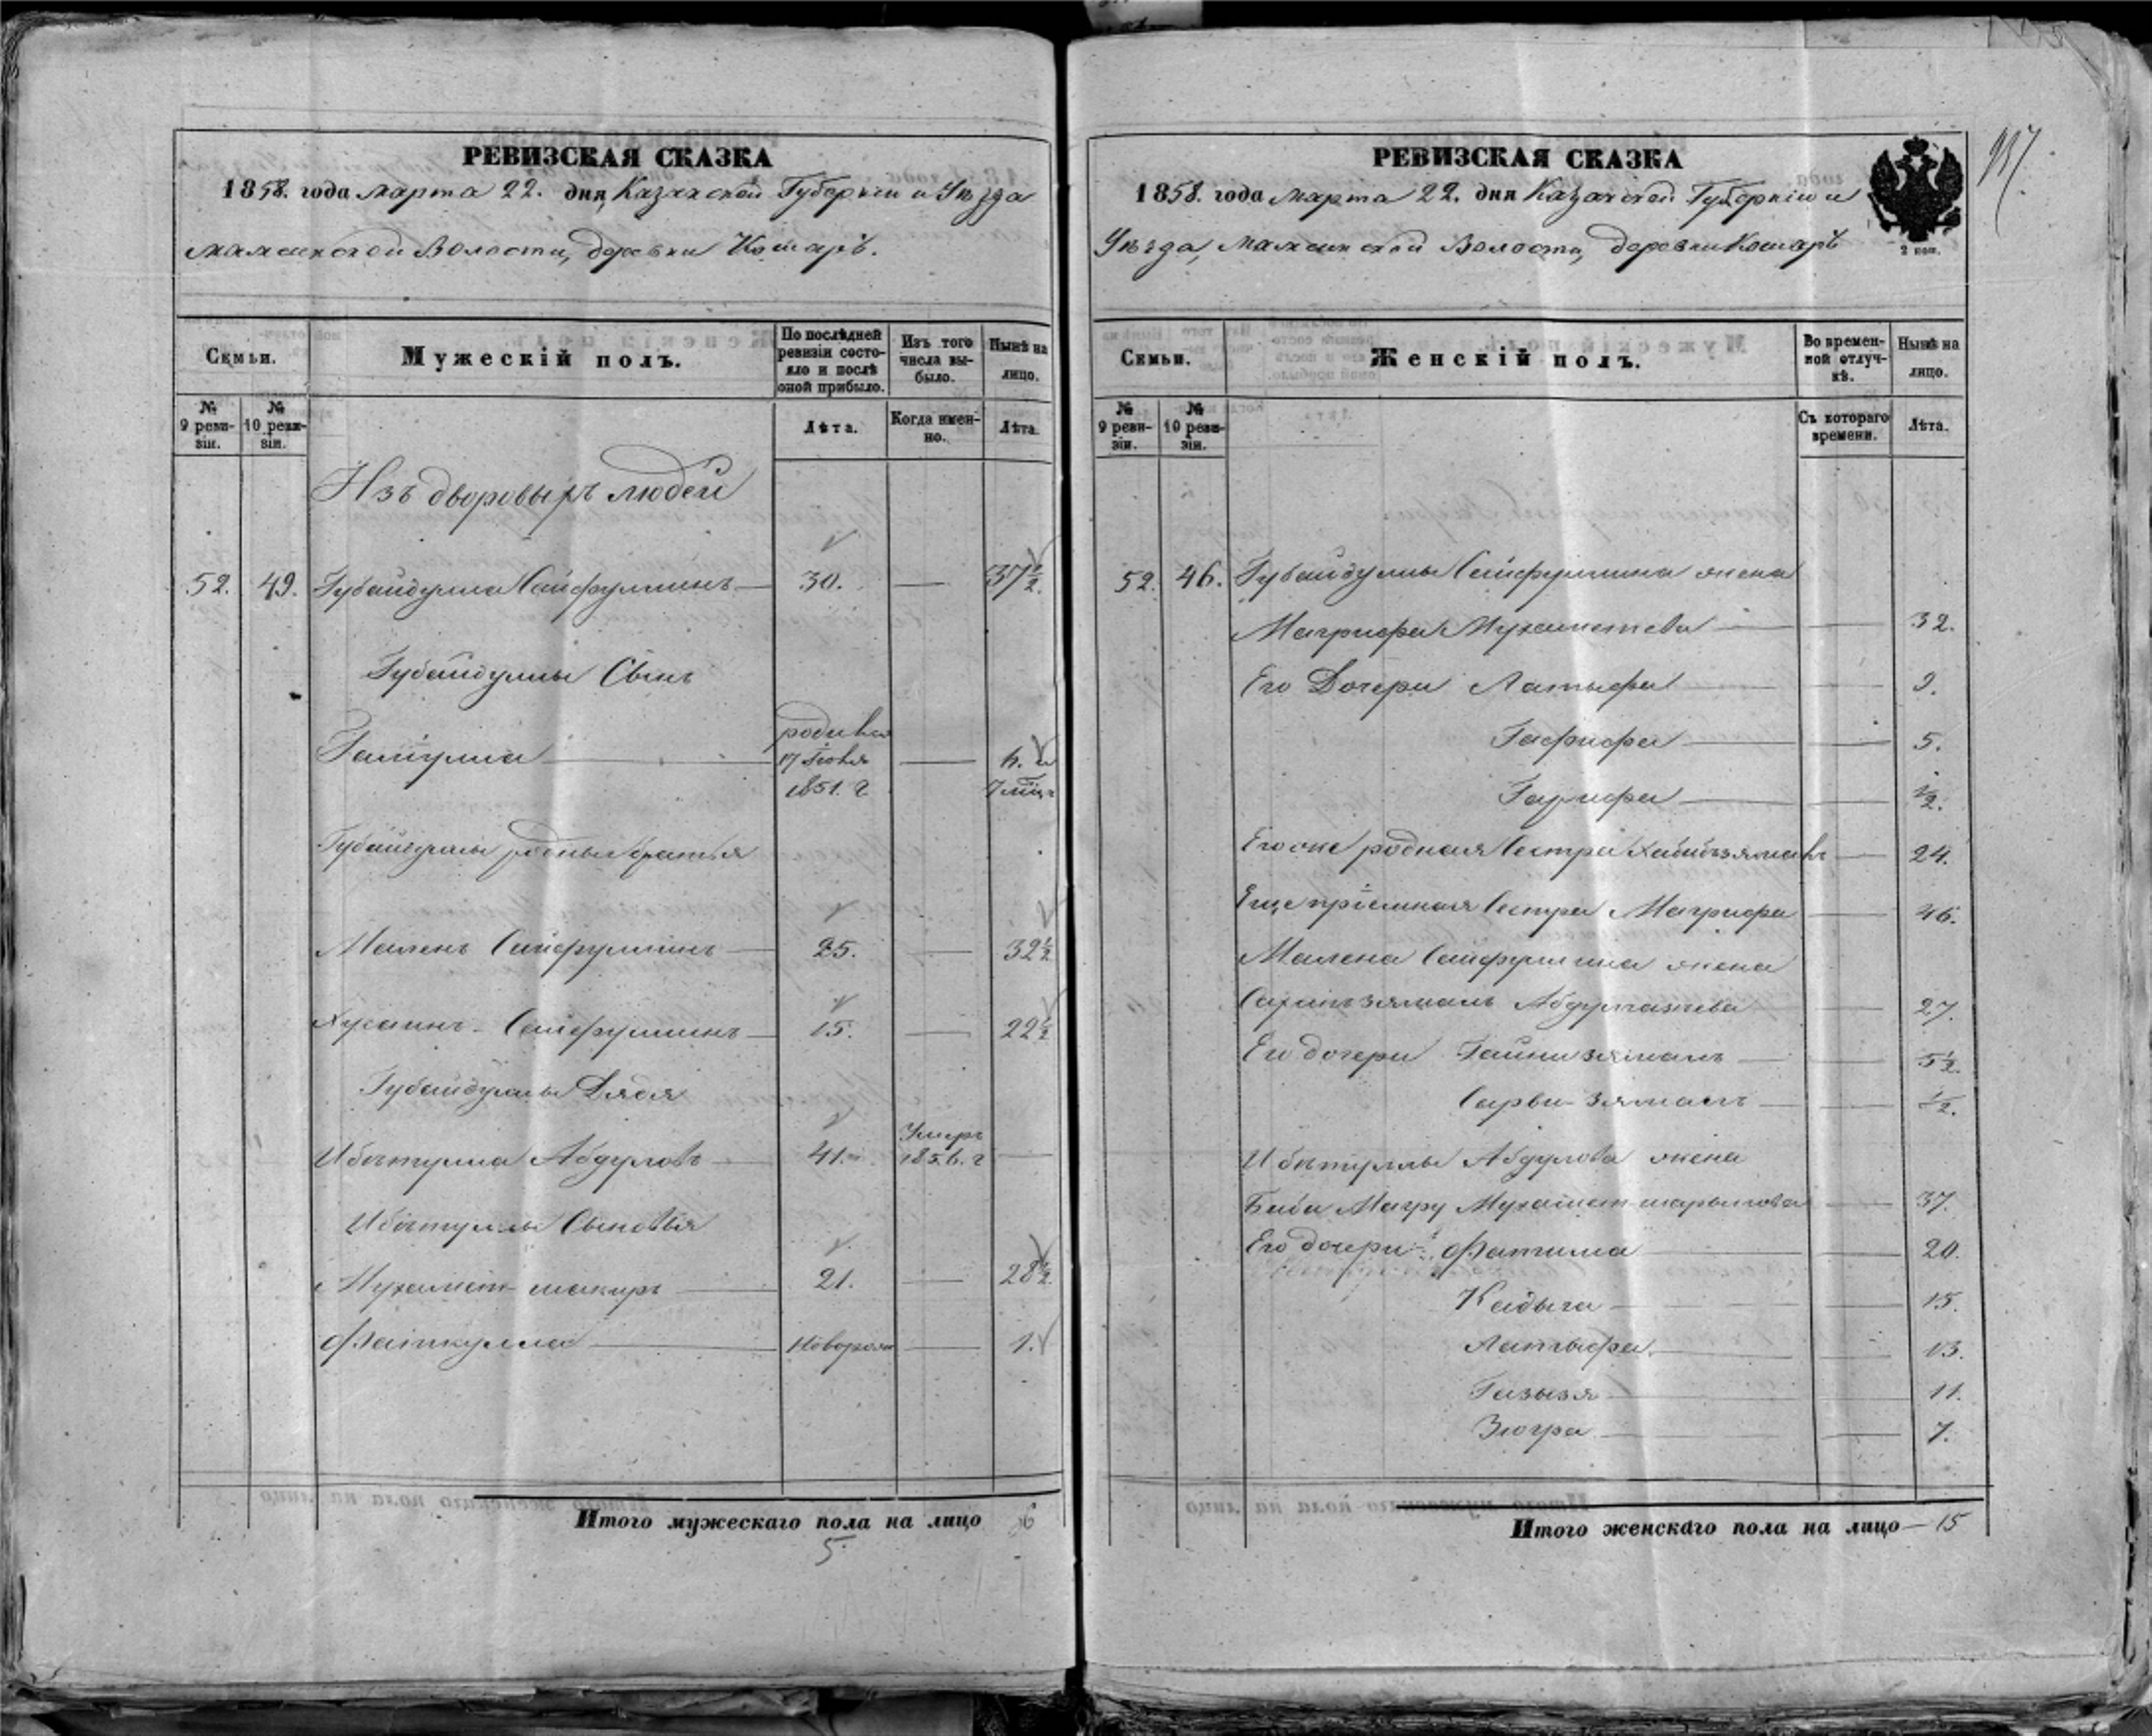 РЕВИЗСКАЯ СКАЗКА
1858. года марта 22. дня, Казанской Губернии и Уѣзда
Мамсинской Волости, деревни Кошарь.
Семьи.
Мужескій полъ.
По послѣдней ревизіи состояло и послѣ оной прибыло.
Изъ того числа выбыло.
Нынѣ на лицо.
№ 9 ревизіи.
№ 10 ревизіи.
Лѣта.
Когда именно.
Лѣта.
Изъ дворовыхъ людей
52. 49. Губайдулла Сайфуллинъ — 30. — 37½.
Губайдуллы Сынъ
Галiулла — родился 17 1851. г — 6. и 7 мцъ
Губайдуллы родные братья
Маленъ Сайфуллинъ — 25. — 32½
Хусаинъ Сайфуллинъ — 15. — 22½
Губайдуллы Дядя
Ибятулла Абдуловъ — 41. Умеръ 1856. г —
Ибятуллы Сыновья
Мухаметшакиръ — 21. — 28½
Фаткулла — Неворож — 1.
Итого мужескаго пола на лицо 6
5.
РЕВИЗСКАЯ СКАЗКА
1858. года марта 22. дня Казанской Губерніи и
Уѣзда, Мамсинской Волости, деревни Кошарь
2 коп.
Семьи.
Женскій полъ.
Во временной отлучкѣ.
Нынѣ на лицо.
№ 9 ревизіи.
№ 10 ревизіи.
Съ котораго времени.
Лѣта.
52. 46. Губайдуллы Сайфуллина жена
Магрифа Мухаметева — — 32.
Его Дочери Латыфа — — 9.
Гафифа — — 5.
Гарифа — — ½.
Его же родная Сестра Хабибзямалъ — 24.
Еще пріемная Сестра Магрифа — 46.
Малена Сайфуллина жена
Сахипзямалъ — 27.
Его дочери Гайнизямалъ — — 5½.
Сарви-зямалъ — — ½.
Ибятуллы Абдулова жена
Биби Магру — 37.
Его дочери: Фатима — — 20.
Кадыча — — 15.
Латыфа. — — 13.
Газызя — — 11.
Зюгра — — 7.
Итого женскаго пола на лицо — 15